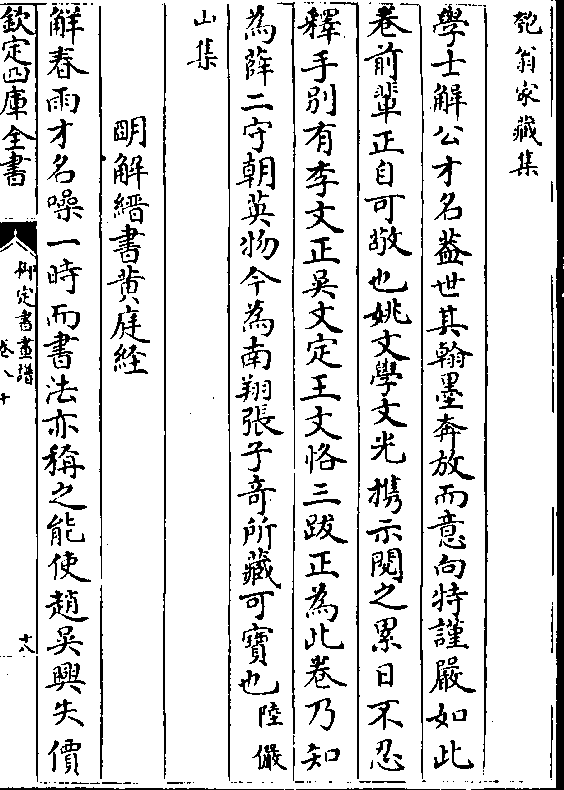 匏翁家藏集
學士解公才名葢世其翰墨奔放而意向特謹嚴如此
卷前輩正自可敬也姚文學文光攜示閱之累日不忍
釋手别有李文正吳文定王文恪三跋正為此卷乃知
為薛二守朝英物今為南翔張子竒所藏可寶也陸儼
山集
明解縉書黄庭経
解春雨才名噪一時而書法亦稱之能使趙吴興失價
欽定四庫全書
御定書畫譜
卷八十
十八